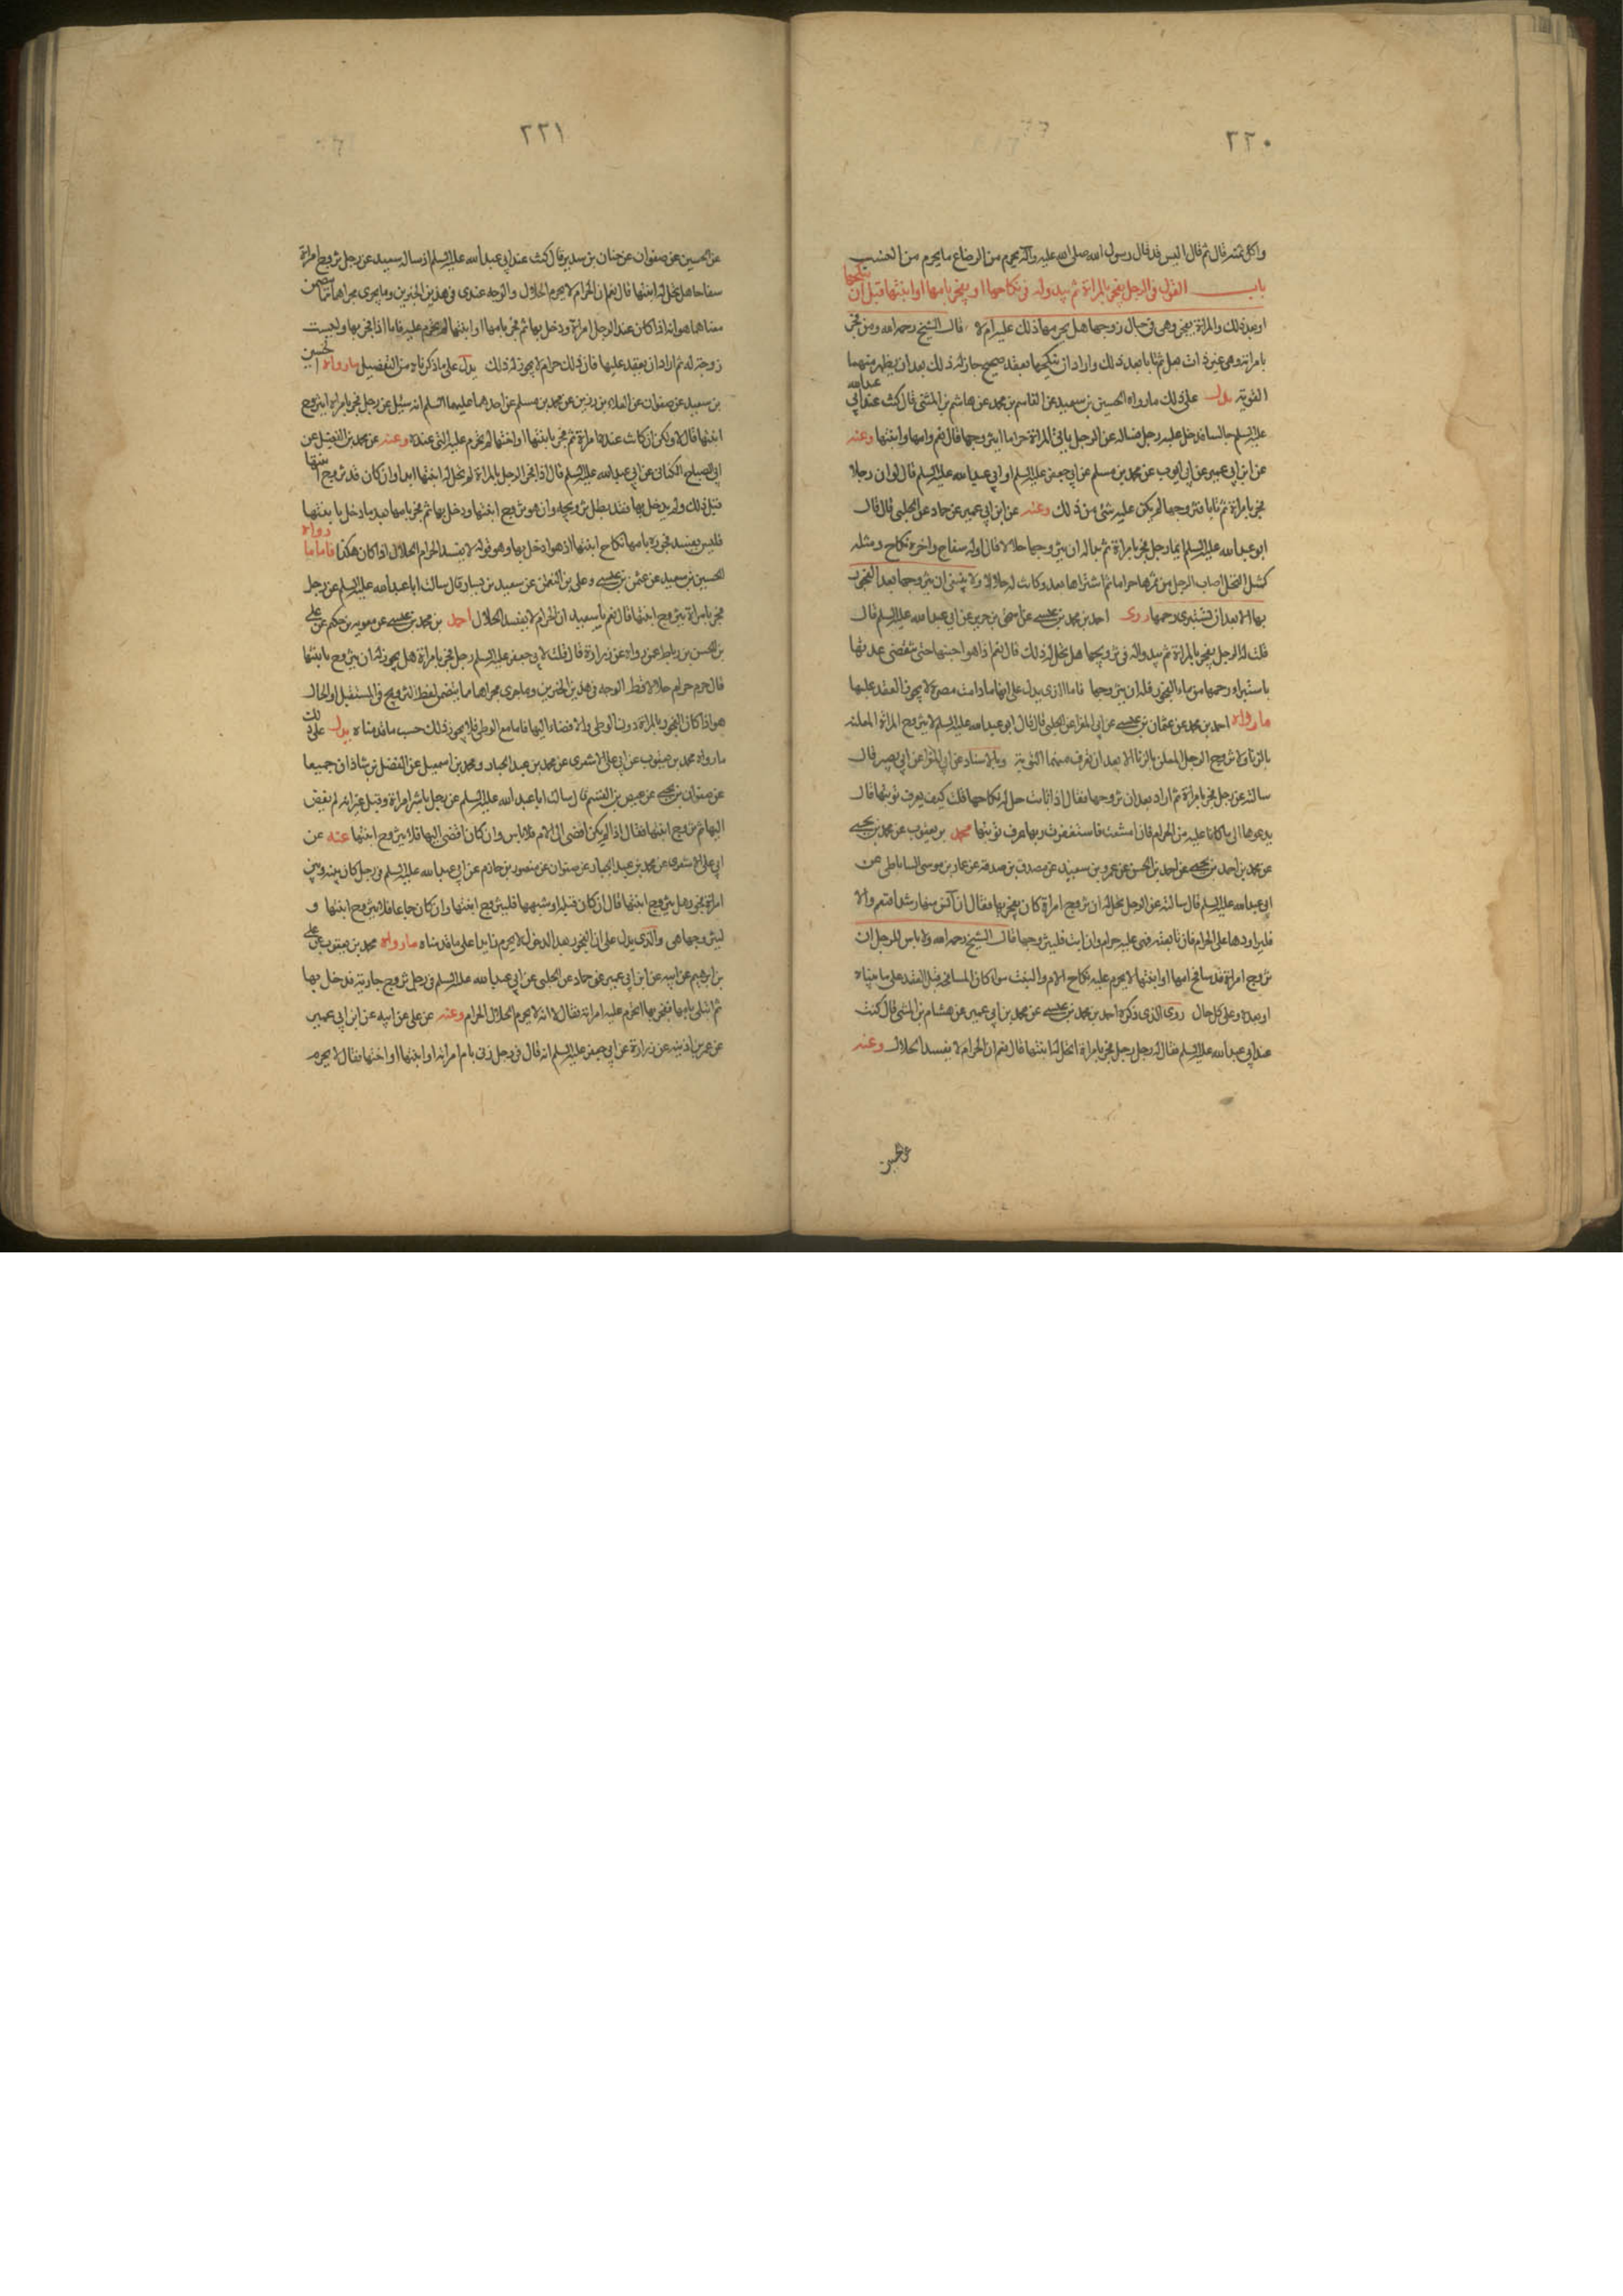 ٢٢٠
واكل ثمنه قال ثم قال اليس قد قال رسول الله صلى الله عليه وآله يحرم من الرضاع ما يحرم من النسب
باب القول فى الرجل يفجر بالمراة ثم يبدو له فى نكاحها او يفجر بامها او ابنتها قبل ان ينكحها
او بعد ذلك والمراة تفجر وهى فى حبال زوجها هل يحرمها ذلك عليه ام لا قال الشيخ رحمه الله ومن فجر
بامراة وهى غير ذات بعل ثم تابا بعد ذلك واراد ان ينكحها بعقد صحيح جاز له ذلك بعد ان يظهر منهما
التوبة يدل على ذلك ما رواه الحسين بن سعيد عن القاسم بن محمد عن هاشم بن المثنى قال كنت عند ابى عبدالله
عليه السلم جالسا فدخل عليه رجل فساله عن الرجل ياتى المراة حراما ايتزوجها قال نعم وامها وابنتها وعنه
عن ابن ابى عمير عن ابى ايوب عن محمد بن مسلم عن ابى جعفر عليه السلم او ابى عبدالله عليه السلم قال لو ان رجلا
فجر بامراة ثم تابا فتزوجها لم يكن عليه شئ من ذلك وعنه عن ابن ابى عمير عن حماد عن الحلبى قال قال
ابو عبدالله عليه السلم ايما رجل فجر بامراة ثم بدا له ان يتزوجها حلالا قال اوله سفاح واخره نكاح ومثله
كمثل النخلة اصاب الرجل من ثمرها حراما ثم اشتراها بعد وكانت له حلالا ولا ينبغى ان يتزوجها بعد الفجور
بها الا بعد ان تستبرئ رحمها روى احمد بن محمد بن عيسى عن اسحق بن جرير عن ابى عبدالله عليه السلم قال
قلت له الرجل يفجر بالمراة ثم يبدو له فى تزويجها هل يحل له ذلك قال نعم اذا هو اجتنبها حتى تنقضى عدتها
باستبراء رحمها من ماء الفجور فله ان يتزوجها فاما الذى يدل على انها ما دامت مصرة لا يجوز العقد عليها
ما رواه احمد بن محمد عن عثمان بن عيسى عن ابى المغرا عن الحلبى قال قال ابو عبدالله عليه السلم لا يتزوج المراة المعلنة
بالزنا ولا يتزوج الرجل المعلن بالزنا الا بعد ان تعرف منهما التوبة وبالاسناد عن ابى المغرا عن ابى بصير قال
سالته عن رجل فجر بامراة ثم اراد بعد ان يتزوجها فقال اذا تابت حل له نكاحها قلت كيف يعرف توبتها قال
يدعوها الى ما كانا عليه من الحرام فان امتنعت فاستغفرت ربها عرف توبتها محمد بن يعقوب عن محمد بن يحيى
عن محمد بن احمد بن يحيى عن احمد بن الحسن عن عمرو بن سعيد عن مصدق بن صدقة عن عمار بن موسى الساباطى عن
ابى عبدالله عليه السلم قال سالته عن الرجل يحل له ان يتزوج امراة كان يفجر بها فقال ان آنس منها رشدا فنعم والا
فليراودها على الحرام فان تابعته فهى عليه حرام وان ابت فليتزوجها قال الشيخ رحمه الله ولا باس للرجل ان
يتزوج امراة قد سافح امها او ابنتها لا يحرم عليه نكاح الام والبنت سواء كان المسافحة قبل العقد على ما بيناه
او بعده وعلى كل حال روى الذى ذكره احمد بن محمد بن عيسى عن محمد بن ابى عمير عن هشام بن المثنى قال كنت
عند ابى عبدالله عليه السلم فقال له رجل رجل فجر بامراة اتحل له ابنتها قال نعم ان الحرام لا يفسد الحلال وعنه
عن الحسين
٢٢١
عن الحسين عن صفوان عن حنان بن سدير قال كنت عند ابى عبدالله عليه السلم اذ ساله سعيد عن رجل تزوج امراة
سفاحا هل يحل له ابنتها قال نعم ان الحرام لا يحرم الحلال والوجه عندى فى هذين الخبرين وما يجرى مجراهما مما تضمن
معناهما هو انه اذا كان عند الرجل امراة ودخل بها ثم فجر بامها او ابنتها لم يحرم عليه فاما اذا فجر بها وليست
زوجته له ثم اراد ان يعقد عليها فان ذلك حرام لا يجوز له ذلك يدل على ما ذكرناه من التفصيل ما رواه الحسين
بن سعيد عن صفوان عن العلاء بن رزين عن محمد بن مسلم عن احدهما عليهما السلم انه سئل عن رجل فجر بامراة ايتزوج
ابنتها قال لا ولكن ان كانت عنده امراة ثم فجر بابنتها او اختها لم يحرم عليه التى عنده وعنه عن محمد بن الفضيل عن
ابى الصباح الكنانى عن ابى عبدالله عليه السلم قال اذا فجر الرجل بالمراة لم تحل له ابنتها ابدا وان كان قد تزوج ابنتها
قبل ذلك ولم يدخل بها فقد بطل تزويجه وان هو تزوج ابنتها ودخل بها ثم فجر بامها بعد ما دخل بابنتها
فليس يفسد فجوره بامها نكاح ابنتها اذ هو دخل بها وهو قوله لا يفسد الحرام الحلال اذا كان هكذا فاما ما رواه
الحسين بن سعيد عن عثمن بن عيسى وعلى بن النعمن عن سعيد بن يسار قال سالت ابا عبدالله عليه السلم عن رجل
فجر بامراة يتزوج ابنتها قال نعم يا سعيد ان الحرام لا يفسد الحلال احمد بن محمد بن عيسى عن معوية بن حكيم عن على
بن الحسن بن رباط عن رواه عن زرارة قال قلت لابى جعفر عليه السلم رجل فجر بامراة هل يجوز له ان يتزوج بابنتها
قال حرم حرام حلالا قط الوجه فى هذين الخبرين وما جرى مجراهما مما يتضمن لفظ التزويج فى المستقبل او الحال
هو اذا كان الفجور بالمراة دون الوطى والافضاء اليها فاما مع الوطى فلا يجوز ذلك حسب ما قدمناه يدل على ذلك
ما رواه محمد بن يعقوب عن ابى على الاشعرى عن محمد بن عبد الجبار ومحمد بن اسمعيل عن الفضل بن شاذان جميعا
عن صفوان بن يحيى عن عيص بن القسم قال سالت ابا عبدالله عليه السلم عن رجل باشر امراة وقبل غير انه لم يفض
اليها ثم تزوج ابنتها فقال اذا لم يكن افضى الى الام فلا باس وان كان افضى اليها فلا يتزوج ابنتها عنه عن
ابى على الاشعرى عن محمد بن عبد الجبار عن صفوان عن منصور بن حازم عن ابى عبدالله عليه السلم فى رجل كان بينه وبين
امراة فجور هل يتزوج ابنتها قال ان كان قبلة او شبهها فليتزوج ابنتها وان كان جماعا فلا يتزوج ابنتها و
ليتزوجها هى والذى يدل على ان الفجور بعد الدخول لا يحرم زايدا على ما قدمناه ما رواه محمد بن يعقوب عن على
بن ابرهيم عن ابيه عن ابن ابى عمير عن حماد عن الحلبى عن ابى عبدالله عليه السلم فى رجل تزوج جارية فدخل بها
ثم ابتلى بامها ففجر بها اتحرم عليه امراته فقال لا انه لا يحرم الحلال الحرام وعنه عن على عن ابيه عن ابن ابى عمير
عن عمر بن اذينه عن زرارة عن ابى جعفر عليه السلم انه قال فى رجل زنى بام امراته او ابنتها او اختها فقال لا يحرم